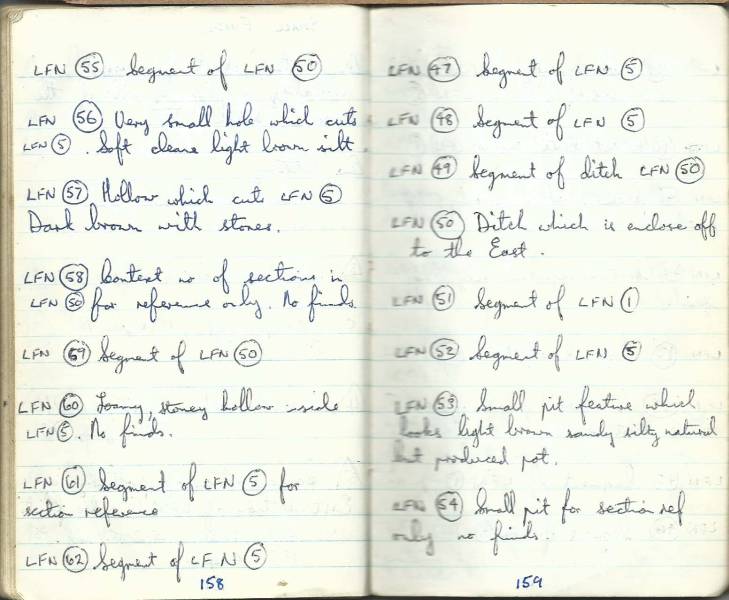 LFN 55 Segment of LFN 50
LFN 56 Very small hole which cuts
LFN 5. Soft cleane light brown silt.
LFN 57 Hollow which cuts LFN 5
Dark brown with stones.
LFN 58 Context no of sections in
LFN 50 for reference only. No finds.
LFN 59 Segment of LFN 50
LFN 60 Loamy, stoney hollow inside
LFN 5. No finds.
LFN 61 Segment of LFN 5 for
section reference
LFN 62 Segment of LFN 5
158
LFN 47 Segment of LFN 5
LFN 48 Segment of LFN 5
LFN 49 Segment of ditch LFN 50
LFN 50 Ditch which is enclose off
to the East.
LFN 51 Segment of LFN 1
LFN 52 Segment of LFN 5
LFN 53 Small pit feature which
looks light brown sandy silty natural
but produced pot.
LFN 54 Small pit for section ref
only no finds
159